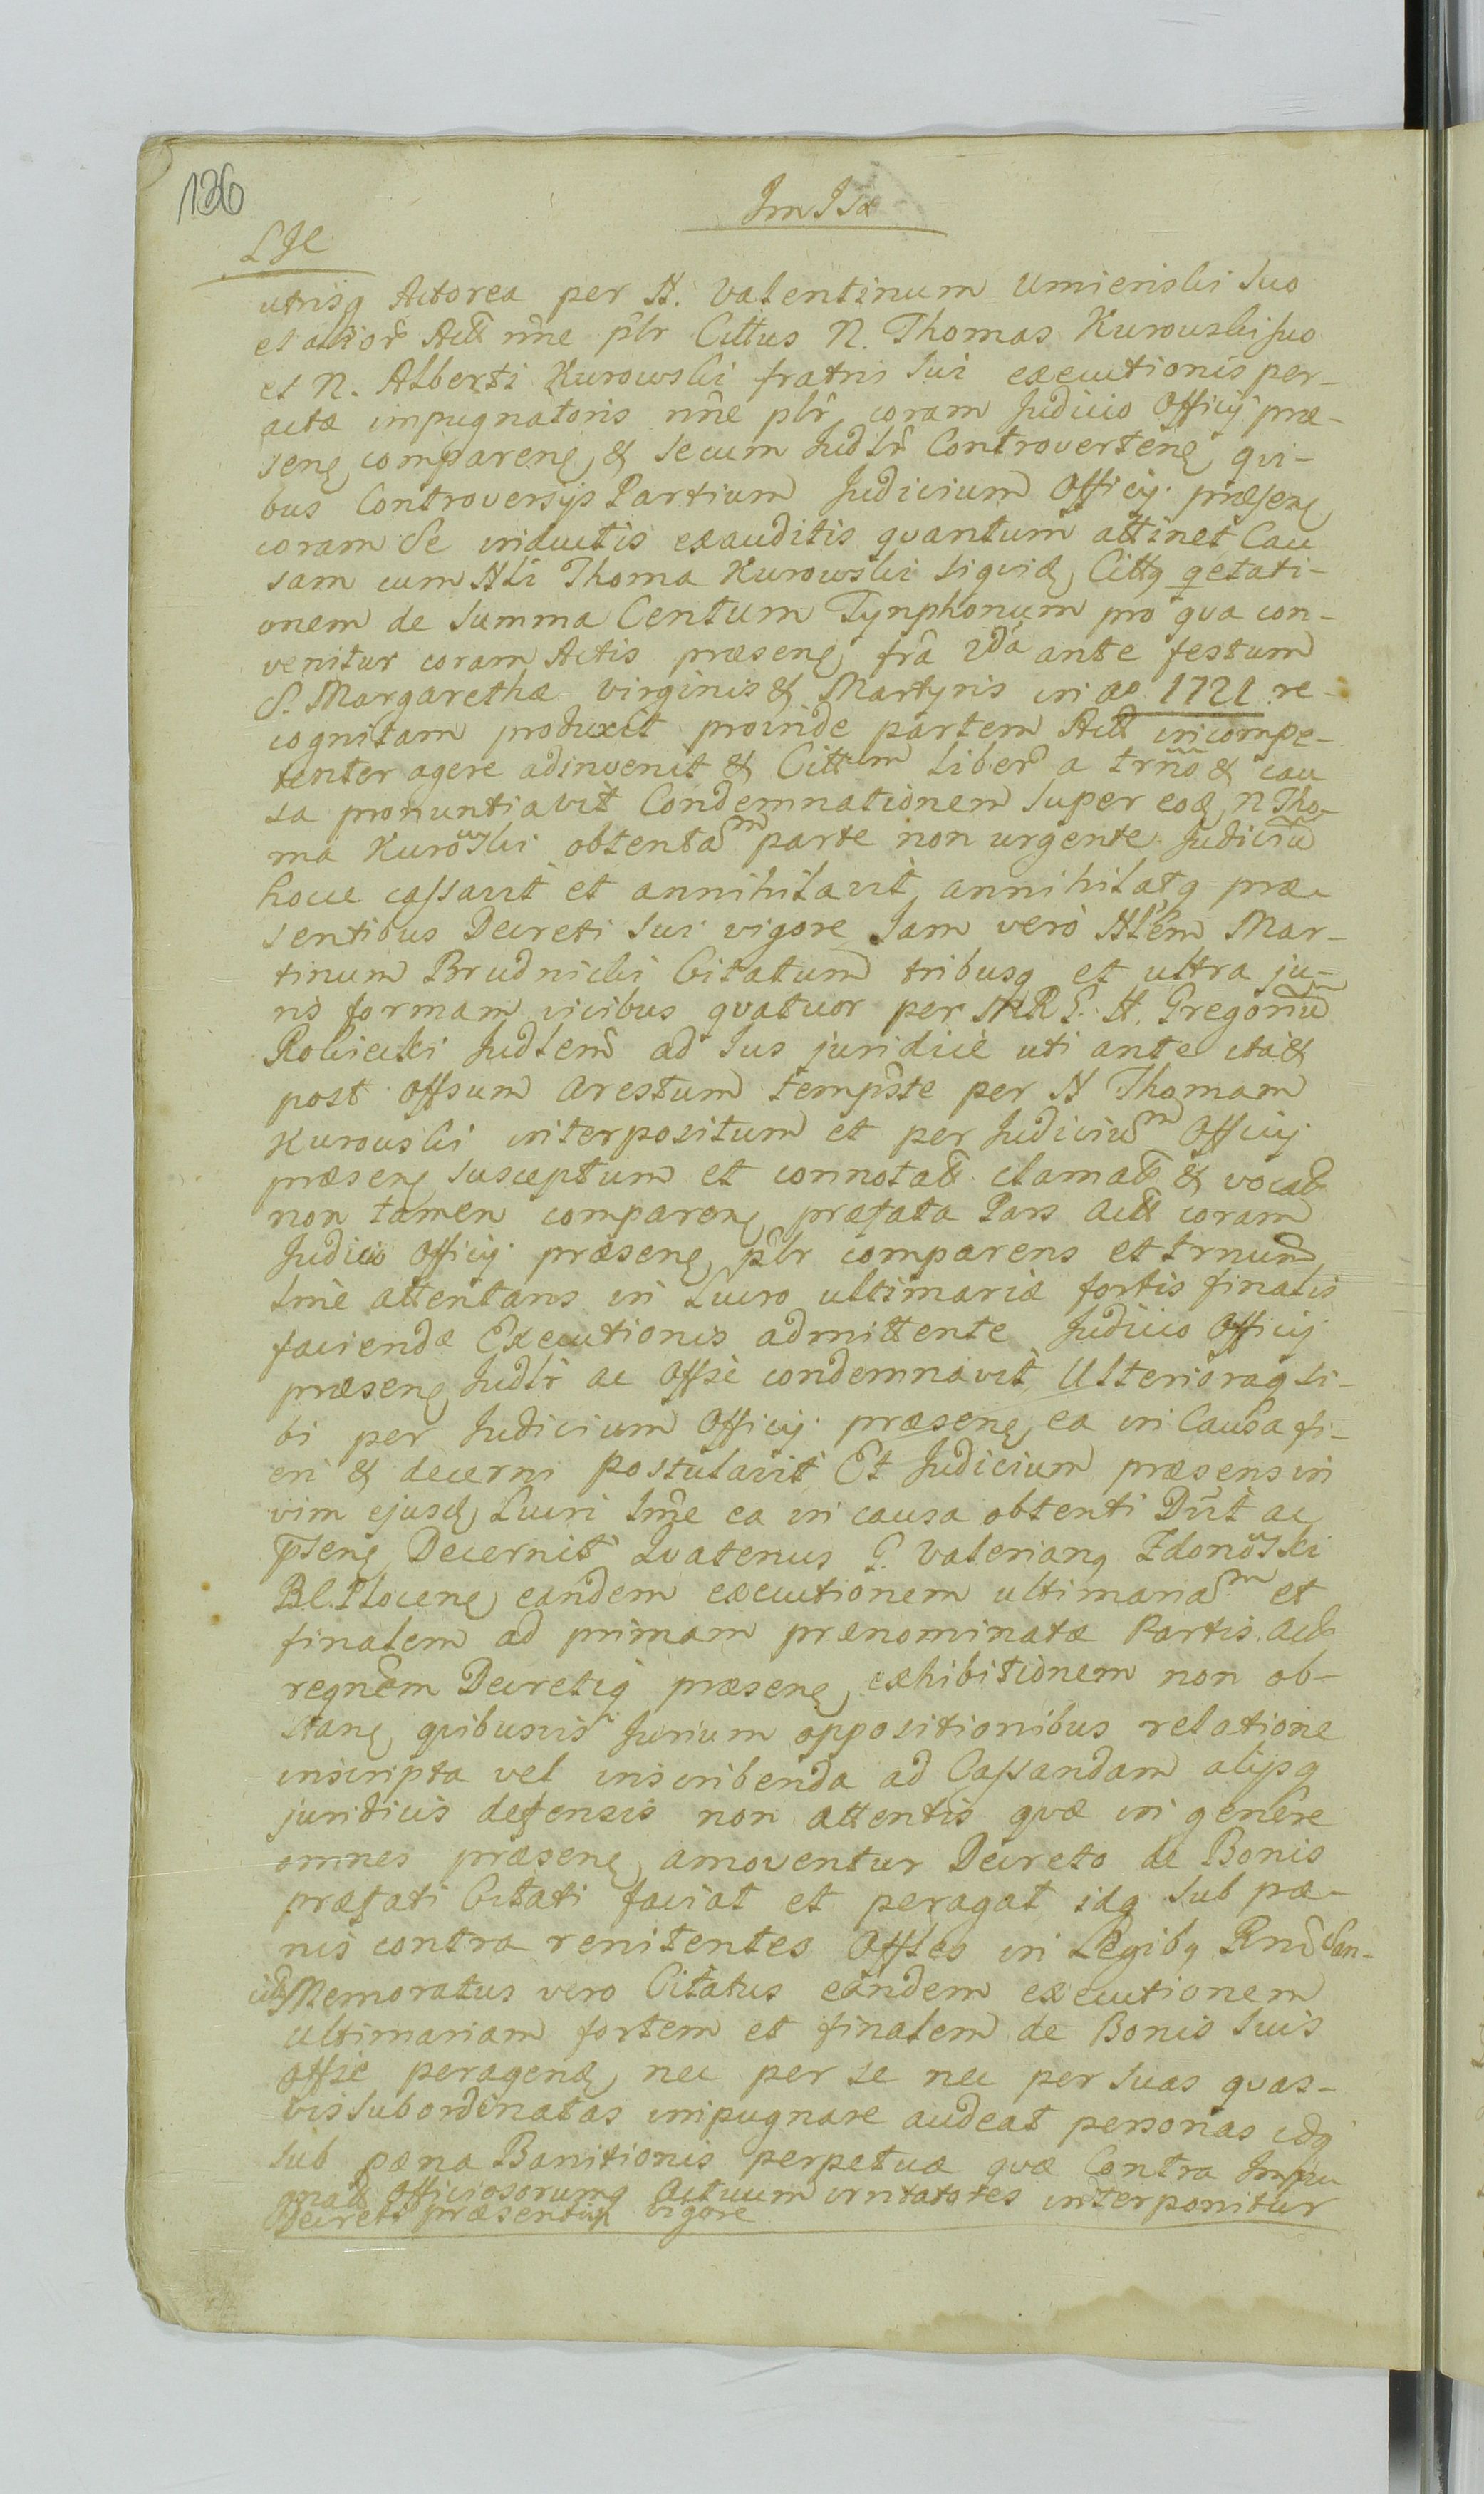 126
LJC
utrisq Actorea per N. Valentinum Umieński suo
et alior Act nne plr Cittus N. Thomas Kurowski suo
et N. Alberti Kurowski fratris sui executionis per-
actæ impugnatoris nne plr coram Judicio Officij præ-
sen comparen & secum Judlr Controverten qui-
bus Controversijs Partium Judicium Officij præsen
coram Se inductis exauditis quantum attinet Cau
sam cum Nli Thoma Kurowski siquid Cittq qetati-
onem de summa Centum Tynphonum pro qua con-
venitur coram Actis præsen fra 2da ante festum
S. Margarethæ Virginis & Martyris in ao 1721 re-
cognitam produxit proinde partem Act incompe-
tenter agere adinvenit & Cittm liber a trno & cau
sa pronuntiavit Condemnationem super eod N Tho-
ma Kurowski obtentam parte non urgente Judiciu
hocce cassavit et annihilavit, annihilatq præ-
sentibus Decreti sui vigore Jam vero Nlem Mar-
tinum Brudnicki Citatum tribusq et ultra ju-
ris formam vicibus quatuor per MRP. N. Gregoriu
Robiecki Judlem ad Jus juridicè uti ante ita &
post offsum arestum tempste per N Thomam
Kurowski interpositum et per Judicium Officij
præsen susceptum et connotatt clamatt & vocatt
non tamen comparen præfata Pars Act coram
Judicio Officij præsen plr comparens et trnum
lmè attentans in lucro ultimariæ fortis finalis
faciendæ Executionis admittente Judicio Officij
præsen Judlr ac Offsè condemnavit Ulterioraq si-
bi per Judicium Officij præsen ea in Causa fi-
eri & decerni postulavit Et Judicium præsens in
vim ejusd Lucri lme ea in causa obtenti Dut ac
psen Decernit Quatenus G. Valerianq Zdonowski
B.C. Plocen eandem executionem ultimariam et
finalem ad primam prænominatæ Partis Act
regnem Decretiq præsen exhibitionem non ob-
stan quibusvis Jurium oppositionibus relatione
inscripta vel inscribenda ad Cassandam alijsq
juridicis defensis non attentis quæ in genere
omnes præsen amoventur Decreto de Bonis
præfati Citati faciat et peragat idq sub pæ-
nis contra renitentes Offles in Legibq Rni San-
citis Memoratus vero Citatus eandem executionem
ultimariam fortem et finalem de Bonis suis
offse peragend nec per se nec per suas quas-
vis subordinatas impugnare audeat personas idq
sub pæna Banitionis perpetuæ quæ Contra Impu
gnatt officiosorumq Actuum irritatotes interponitur
Decreti præsentis vigore